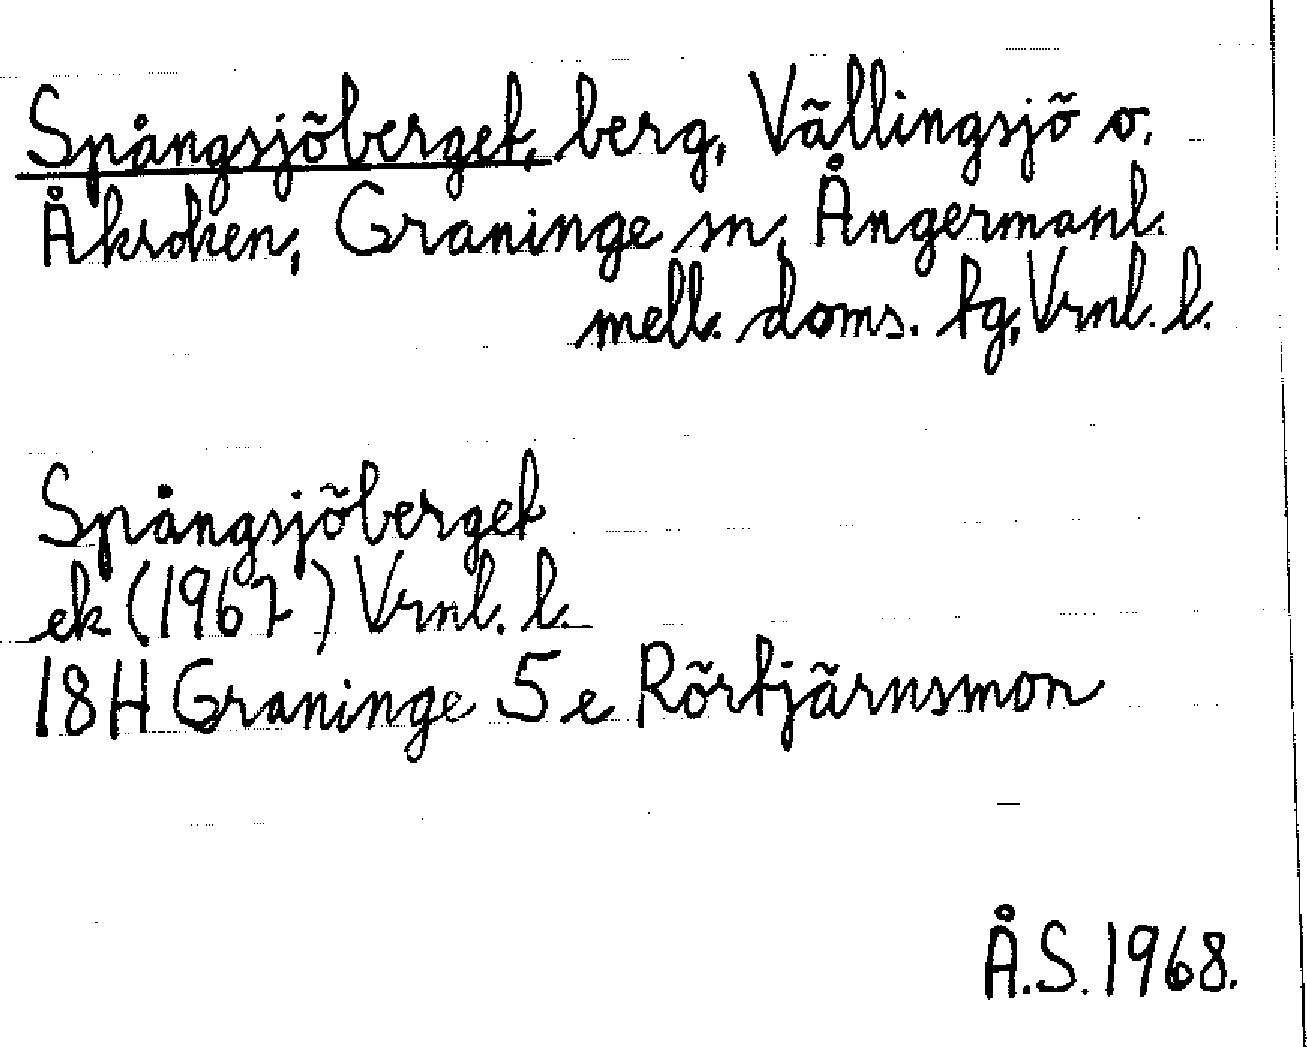 Spångsjöberget, berg, Vällingsjö o.
Åkroken, Graninge sn, Ångermanl.
mell. doms. tg, Vrnl. l.
Spångsjöberget
ek (1967) Vrnl. l.
18H Graninge 5e Rörtjärnsmon
Å.S. 1968.